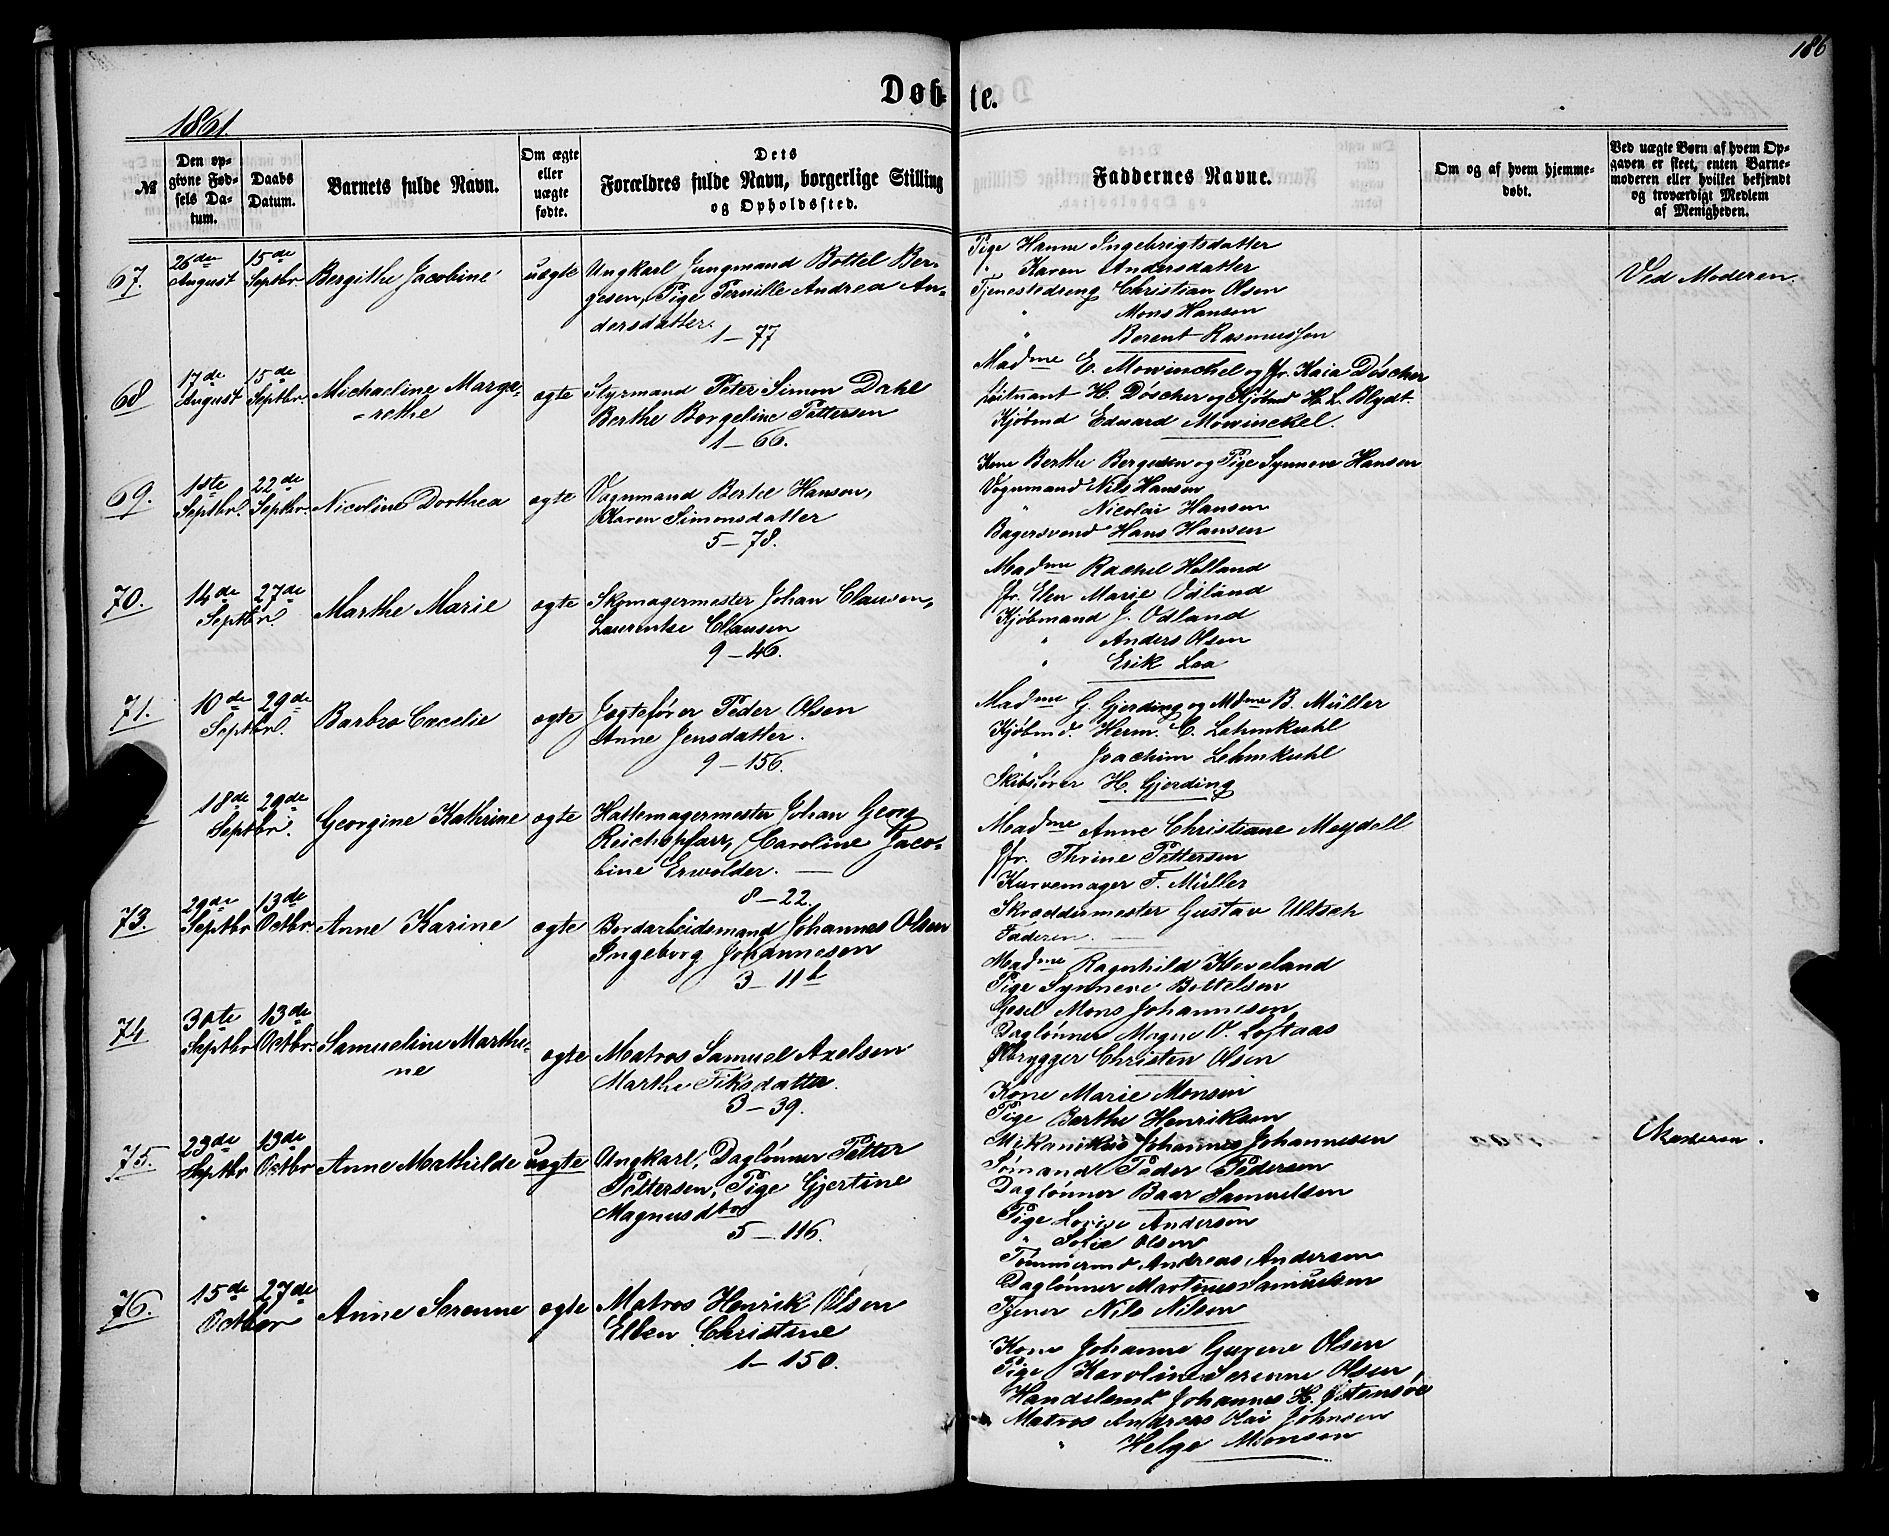 186
Døb- te.
1861.
№
Den op-
givne Fød-
sels Da-
tum.
Daabs
Datum.
Barnets fulde Navn.
Om ægte
eller
uægte
fødte.
Dets
Forældres fulde Navn, borgerlige Stilling
og Opholdssted.
Faddernes Navne.
Om og af hvem hjemme-
døbt.
Ved uægte Børn af hvem Op-
gaven er skeet, enten Barne-
moderen eller hvilket bekjendt
og troværdigt Medlem
af Menigheden.
67.
26de
August
15de
Septbr.
Bergithe Jacobine
uægte
Ungkarl Jungmand Bottel Ber-
gesen, Pige Pernille Andrea An-
dersdatter.
1–77
Pige Hanne Ingebrigtsdatter
" Karen Andersdatter
Tjenestedreng Christian Olsen
" Mons Hansen
Berent Rasmussen
Ved Moderen.
68
17de
August
15de
Septbr.
Michaeline Marga-
rethe
ægte
Styrmand Peter Simon Dahl
Berthe Borgeline Pettersen
1–66.
Madme E. Mowinckel og Jfr. Kaia Döscher
Løitnant H. Döscher og Kjøbmd H. L. Blydt
Kjøbmd Edvard Mowinckel.
69.
1ste
Septbr.
22de
Septbr.
Nicoline Dorthea
ægte
Vognmand Bertel Hansen,
Karen Simonsdatter
5–78.
Kone Berthe Bergesen og Pige Synneve Hansen
Vognmand Nils Hansen
" Nicolai Hansen
Bagersvend Hans Hansen
70.
14de
Septbr.
27de
Marthe Marie
ægte
Skomagermester Johan Clausen,
Laurentse Clausen
9–46.
Madme Rachel Helland
Jfr. Elen Marie Odland
Kjøbmand J. Odland
" Anders Olsen
" Erik Loa
71.
10de
Septbr.
29de
Barbra Cecelie
ægte
Jagtefører Peder Olsen
Anne Jensdatter.
9–156.
Madme G. Gjerding og Mdme B. Müller
Kjøbmd. Herm. C. Lehmkuhl
" Joachim Lehmkuhl
Skibsfører H. Gjerding
18de
Septbr.
29de
Georgine Kathrine
ægte
Hattemagermester Johan Georg
Reichspfarr, Caroline Jaco-
bine Erwolder.
8–22.
Madme Anne Christiane Meydell
Jfr. Thrine Pettersen
Kurvemager F. Müller
Skræddermester Gustav Ultsch
Faderen.
73.
29de
Septbr
13de
Octbr
Anne Karine
ægte
Bordarbeidsmand Johannes Olsen
Ingeborg Johannesen
3–11b
Madme Ragnhild Kleveland
Pige Synneve Bottelsen
Gesel Mons Johannesen
Dagløнner Magne O. Loftaas
Ølbrygger Christen Olsen
74
30te
Septbr
13de
Octbr.
Samueline Marthi-
ne
ægte
Matros Samuel Axelsen
Marthe Fiksdatter.
3–39.
Kone Marie Monsen
Pige Berthe Henriksen
Mekanikus Johannes Johannesen
Sømand Peder Pedersen
Dagløнner Baar Samuelsen
75.
23de
Septbr
13de
Octbr
Anne Mathilde
uægte
Ungkarl, Dagløнner Petter
Pettersen, Pige Gjertine
Magnusdtr
5–116.
Pige Lovise Andersen
" Sofie Olsen
Tømmermd Andreas Andersen
Dagløнner Martinus Samuelsen
Tjener Nils Nilsen
Moderen.
76.
15de
Octber
27de
Anne Serenne
ægte
Matros Henrik Olsen
Ellen Christine
1–150.
Kone Johanne Gurine Olsen
Pige Karoline Serenne Olsen,
Handelsmd Johannes H. Østensøe
Matros Andreas Olai Johnsen
" Helge Monsen